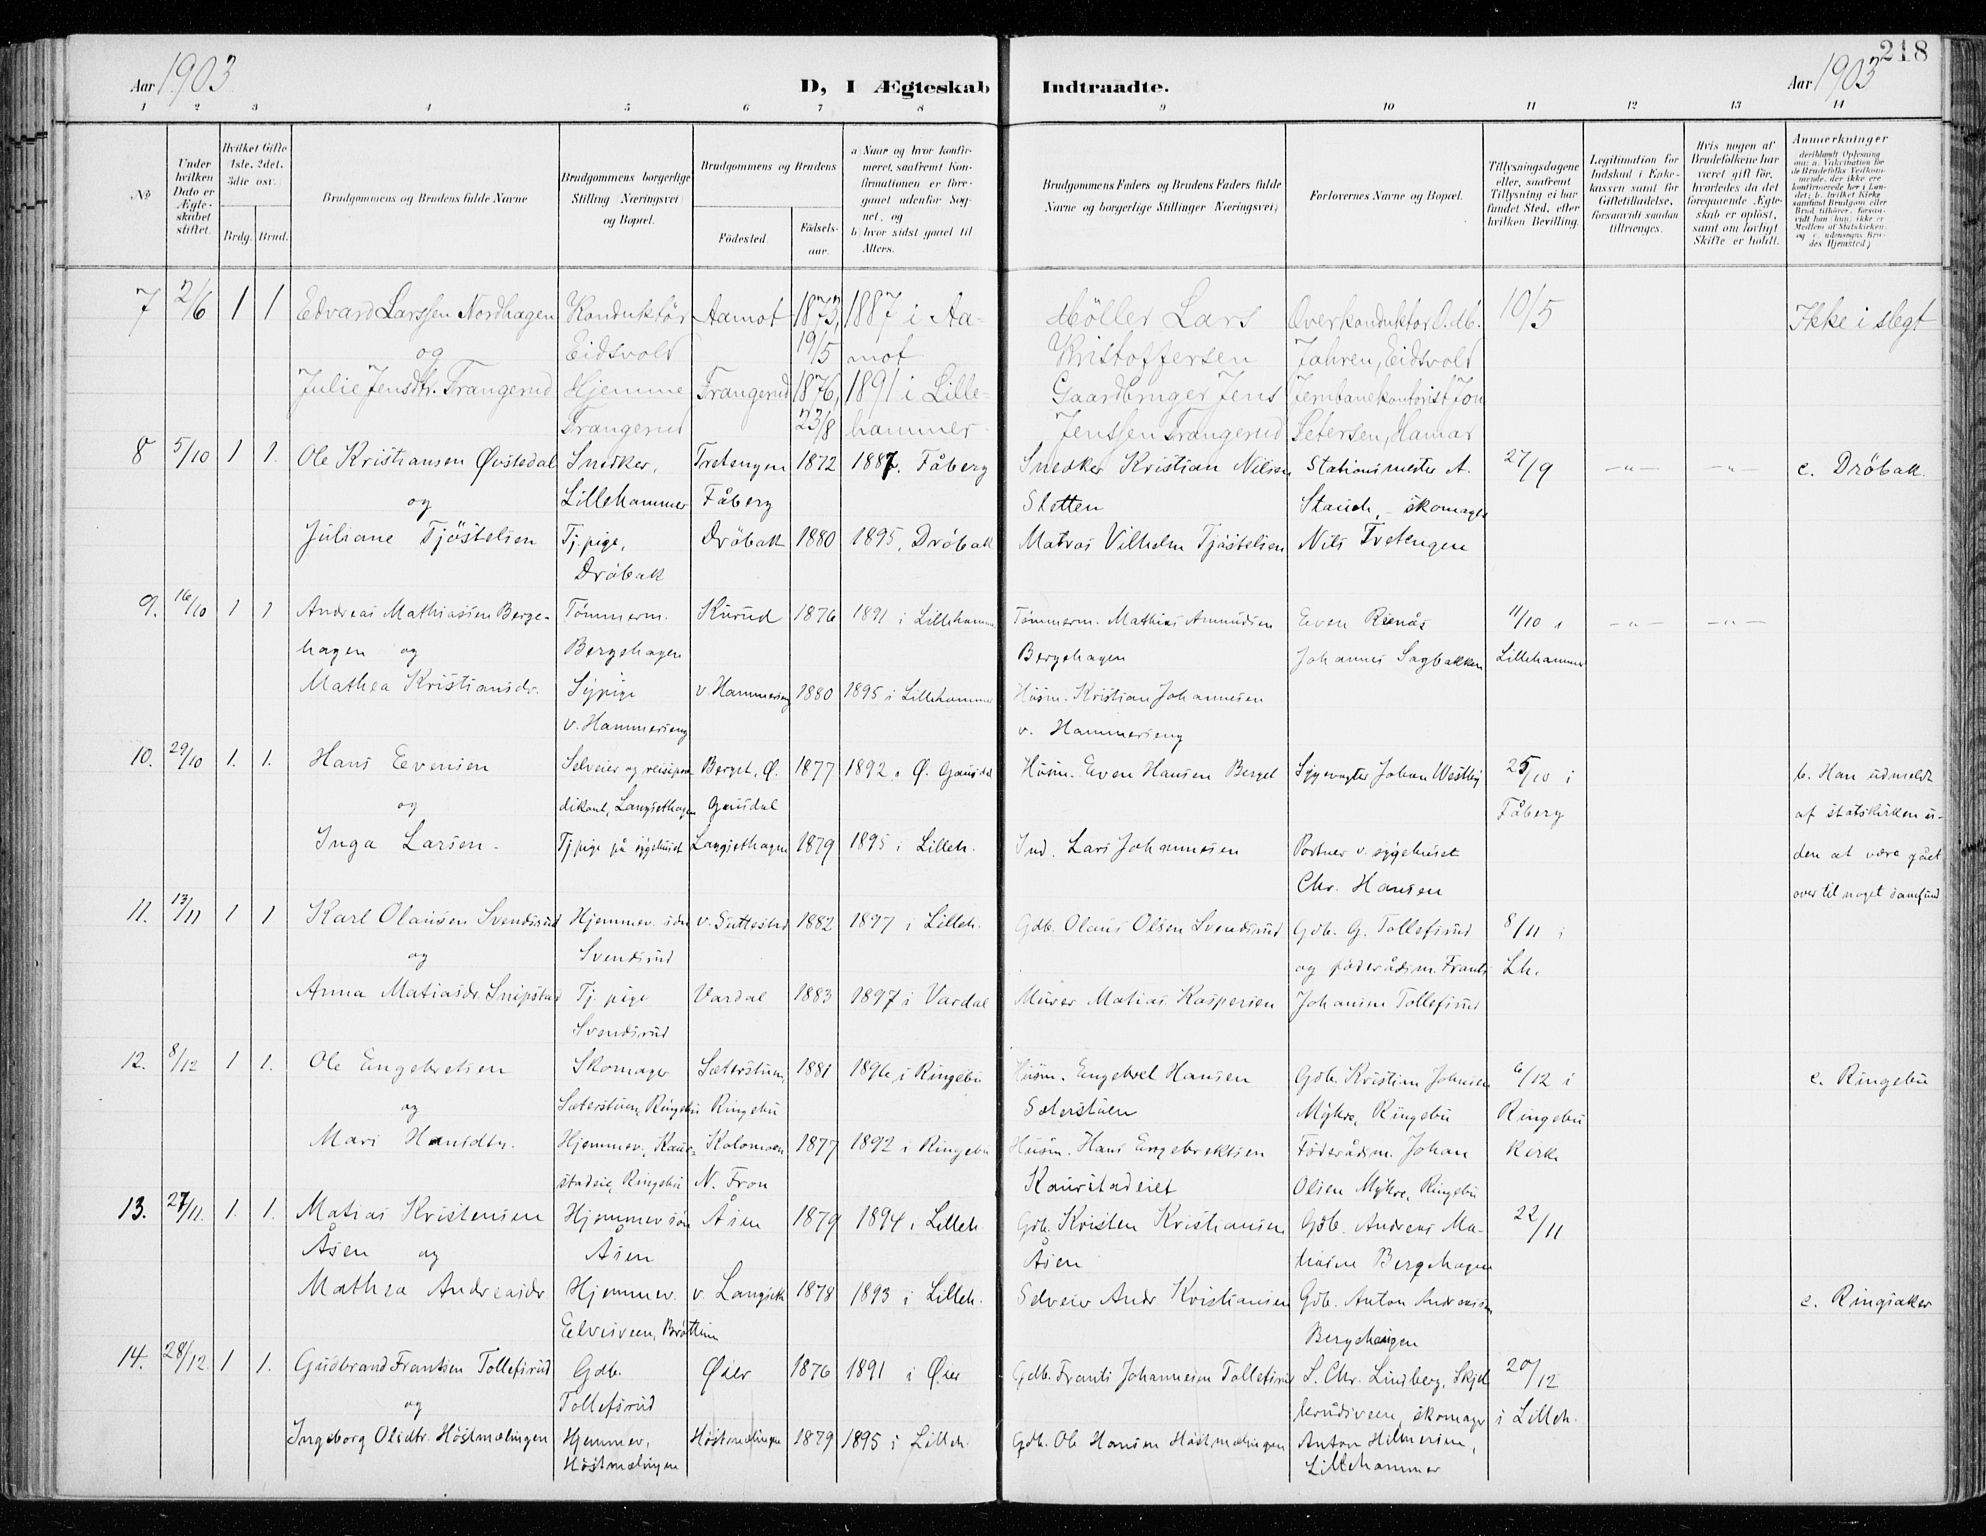 218
Aar 1903
D, I Ægteskab Indtraadte.
Aar 1903
1 2 3 4 5 6 7 8 9 10 11 12 13 14
No
Under hvilken Dato er Ægteskabet stiftet.
Hvilket Gifte 1ste, 2det, 3die osv.
Brdg. Brud.
Brudgommens og Brudens fulde Navne
Brudgommens borgerlige Stilling Næringsvei og Bopæl.
Brudgommens og Brudens
Fødested.
Fødselsaar.
a Naar og hvor konfirmeret, saafremt Konfirmationen er foregaaet udenfor Sognet, og
b hvor sidst gaaet til Alters.
Brudgommens Faders og Brudens Faders fulde Navne og borgerlige Stillinger Næringsvei)
Forlovernes Navne og Bopæl.
Tillysningsdagene eller, saafremt Tillysning ei har fundet Sted, efter hvilken Bevilling.
Legitimation for Indskud i Enkekassen samt for Giftetilladelse, forsaavidt saadan tiltrænges.
Hvis nogen af Brudefolkene har været gift før, hvorledes da det foregaaende Ægteskab er opløst, samt om lovligt Skifte er holdt.
Anmerkninger
7 2/6 1 1 Edvard Larssen Nordhagen Konduktör Aamot 1873, 1887 i Aa- Möller Lars Overkonduktör O. M. 10/5 Ikke i slegt
og Eidsvold 19/5 mot Kristoffersen Jahren, Eidsvold
Julie Jensdtr. Trangerud Hjemme Trangerud 1876, 1891 i Lille- Gaardbruger Jens Jernbanekontorist Jon
Trangerud 23/8 hammer Jenssen Trangerud Petersen, Hamar
8 5/10 1 1. Ole Kristiansen Øvstedal Snedker, Tretengen 1872 1887. Fåberg Snedker Kristian Nilssen Stationsmester A. 27/9 —„— —„— c. Dröbak.
og Lillehammer Fåberg Sletten skomager
Juliane Tjöstelsen Tj. pige, Dröbak 1880 1895, Dröbak Matros Vilhelm Tjöstelsen Nils Tretengen
Dröbak
9. 16/10 1 1 Andreas Mathiassen Berge- Tømmerm. Kurud 1876 1891 i Lillehammer Tømmerm. Mathias Amundsen Even 11/10 i —„— —„—
hagen og Bergehagen Bergehagen Johannes Sagbakken Lillehammer
Mathea Kristiansdr. Sypige v. Hammerseng 1880 1895 i Lillehammer Husm. Kristian Johannesen
v. Hammerseng v. Hammerseng
10. 29/10 1. 1. Hans Evensen Selveier og reisepræ- Berget, Ø. 1877 1892 i Ø. Gausdal Husm. Even Hansen Berget Sygevogter Johan Westby 25/10 i b. Han udmeldt
og dikant, Langsethagen Gausdal Fåberg af statskirken u-
Inga Larsen. Tj. pige på sygehuset Langsethagen 1879 1895 i Lilleh. Ind. Lars Johannesen Portner v. sygehuset den at være gået
Chr. Hansen over til noget samfund
11. 13/11 1 1 Karl Olausen Svendsrud Hjemmev. sön v. Suttestad 1882 1897 i Lilleh. Gdb. Olaus Olsen Svendsrud Gdb. G. Tollefsrud 8/11 i
og Svendsrud og föderådsm. Frants Lh.
Anna Matiasdr. Snipstad Tj. pige Vardal 1883 1897 i Vardal Murer Matias Kaspersen Johansen Tollefsrud
Svendsrud
12. 8/12 1 1. Ole Engebretsen Skomager Sæterstuen, 1881 1896 i Ringebu Husm. Engebret Hansen Gdb. Kristian Johnsen 6/12 i c. Ringebu
og Sæterstuen, Ringebu Ringebu Sæterstuen Mykre, Ringebu Ringebu
Mari Hansdtr. Hjemmev., Kaur- Kolomoen 1877 1892 i Ringebu Husm. Hans Engebrektsen Föderådsm. Johan Kirke
stadeie, Ringebu N. Fron Kaurstadeiet Olsen Mykre, Ringebu
13. 27/11. 1. 1. Matias Kristensen Hjemmev. sön Åsen 1879 1894 i Lilleh. Gdb. Kristen Kristiansen Gdb. Andreas Ma- 22/11
Åsen og Åsen Åsen tiasen Bergehagen
Mathea Andreasdr Hjemmev. v. Langseth 1878 1893 i Lilleh. Selveier Andr. Kristiansen Gdb. Anton Andreassen c. Ringsaker
Brøttum Bergehaugen
14. 28/12. 1 1. Gudbrand Frantsen Tollefsrud Gdb. Øier 1876 1891 i Øier Gdb. Frants Johannesen Tollefsrud S. Chr. Lindberg, Skjel- 20/12
og Tollefsrud lerudsveen, skomager i Lilleh.
Ingeborg Olsdtr. Höstmælingen Hjemmev. Höstmælingen 1879 1895 i Lilleh. Gdb. Ole Hansen Höstmælingen Anton Hilmersen,
Höstmælingen Lillehammer